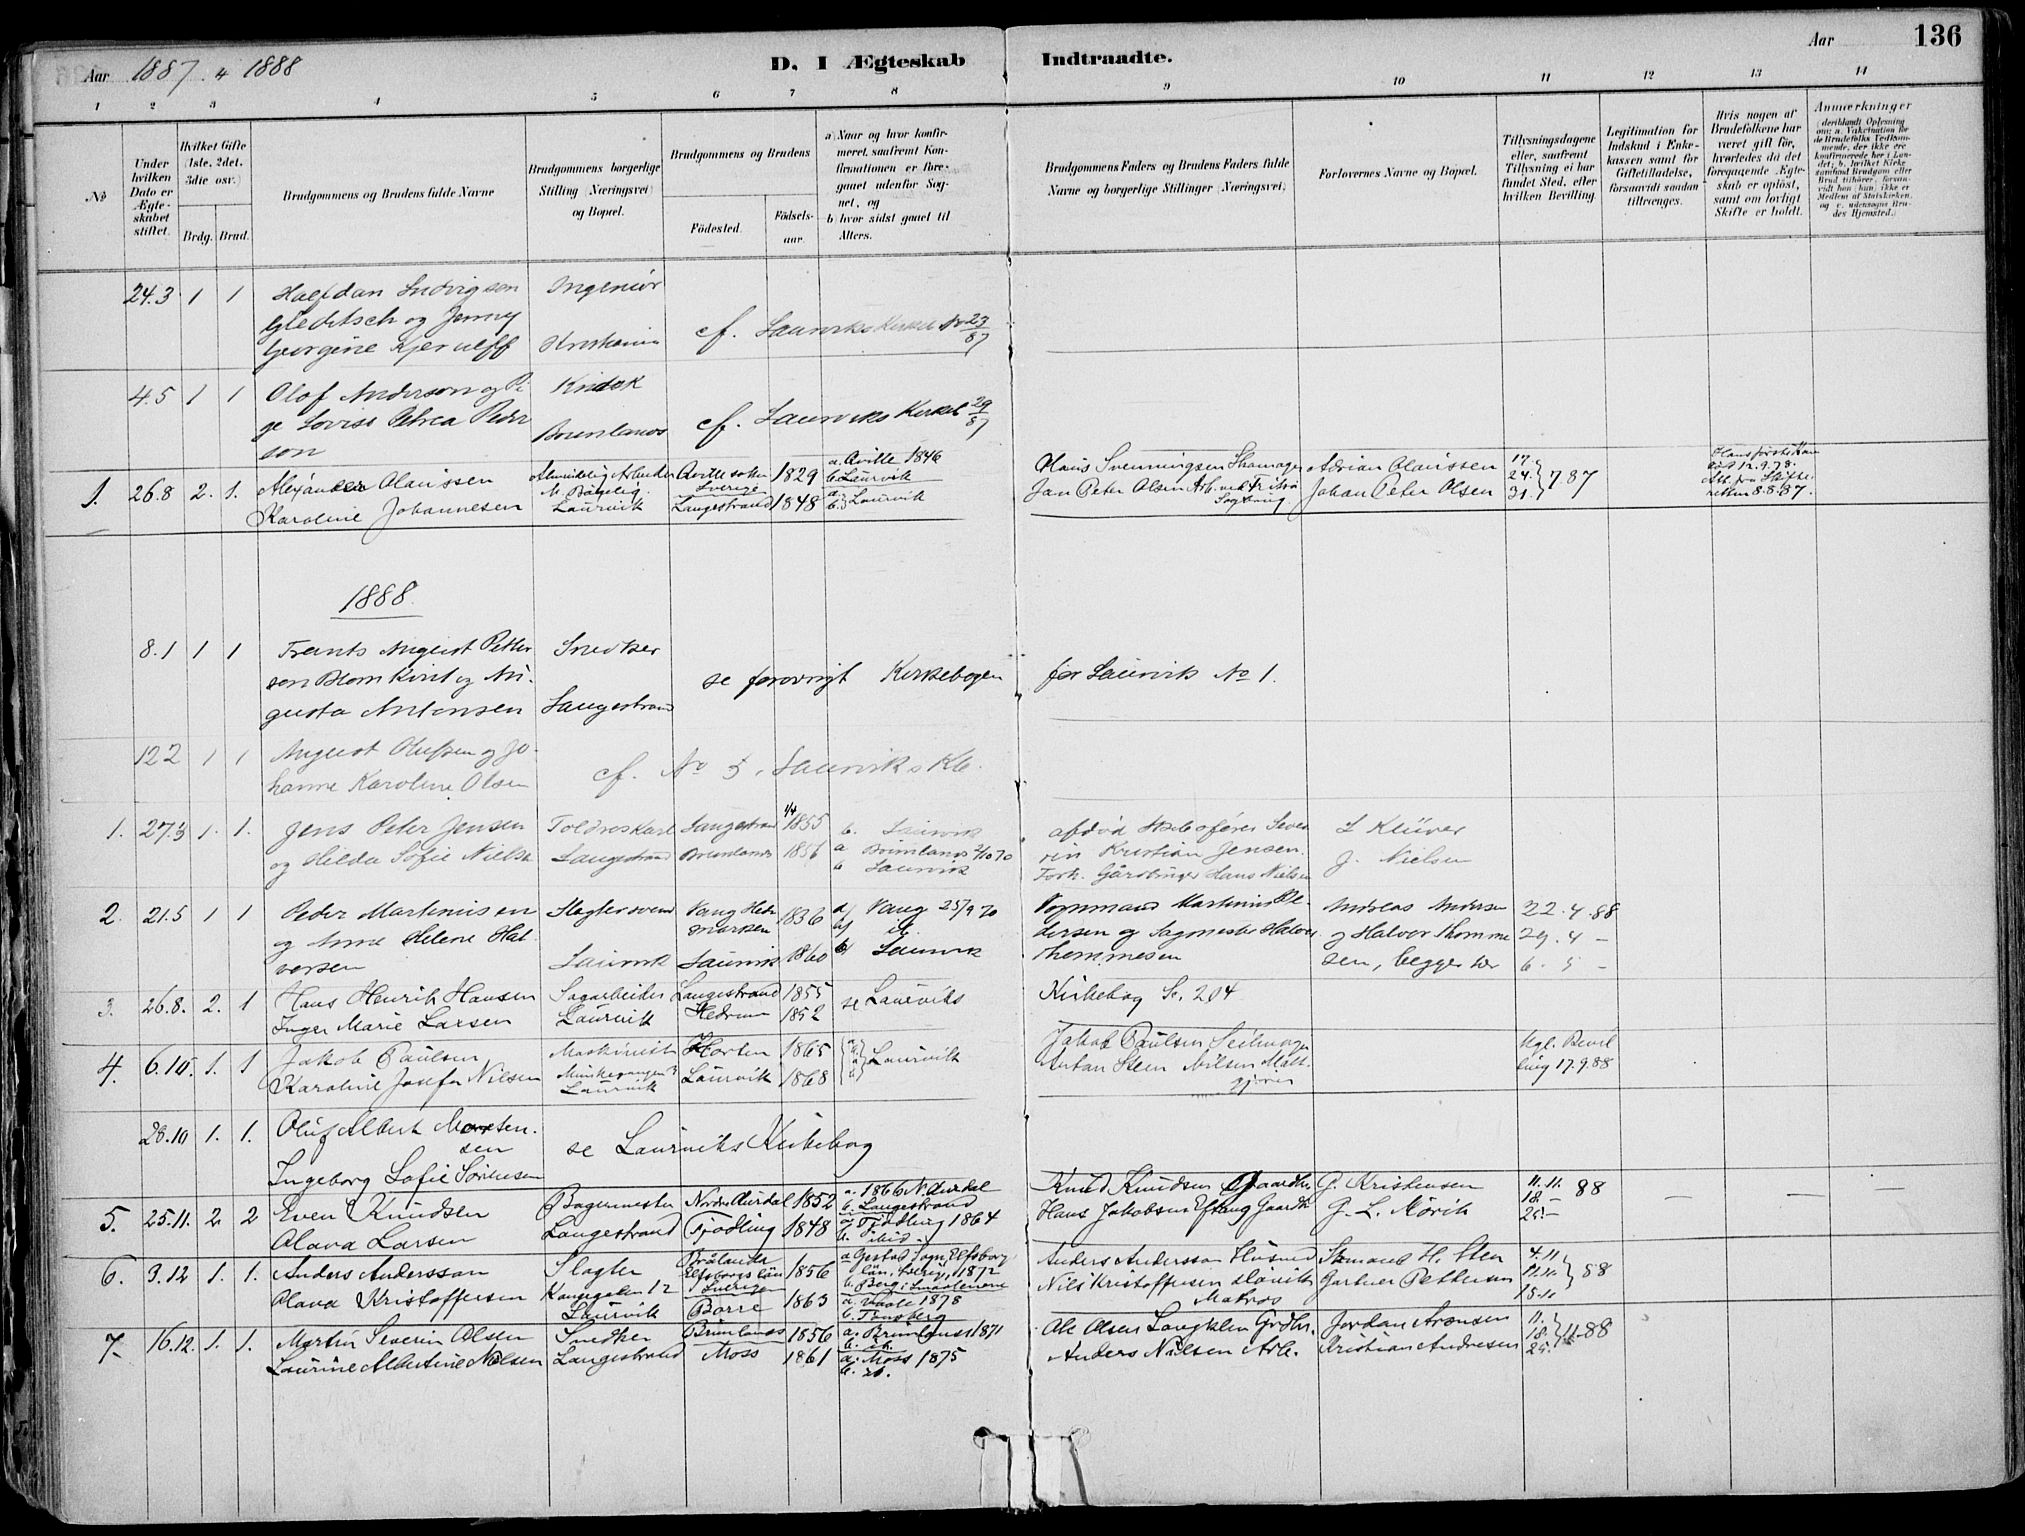 Aar 1887 & 1888
D. I Ægteskab Indtraadte.
Aar 136
1 2 3 4 5 6 7 8 9 10 11 12 13 14
No
Under hvilken Dato er Ægteskabet stiftet.
Hvilket Gifte (1ste, 2det, 3die osv.)
Brdg. Brud.
Brudgommens og Brudens fulde Navne
Brudgommens borgerlige Stilling (Næringsvei) og Bopæl.
Brudgommens og Brudens
Fødested.
Fødselsaar.
a) Naar og hvor konfirmeret, saafremt Konfirmationen er foregaaet udenfor Sognet, og
b) hvor sidst gaaet til Alters.
Brudgommens Faders og Brudens Faders fulde Navne og borgerlige Stillinger (Næringsvei)
Forlovernes Navne og Bopæl.
Tillysningsdagene eller, saafremt Tillysning ei har fundet Sted, efter hvilken Bevilling.
Legitimation for Indskud i Enkekassen samt for Giftetilladelse, forsaavidt saadan tiltrænges.
Hvis nogen af Brudefolkene har været gift før, hvorledes da det foregaaende Ægteskab er opløst, samt om lovligt Skifte er holdt.
Anmærkninger
24.3 1 1 Halfdan Ludvigsen Ingeniør
Gleditsch og Jenny
Georgine Kjerulff Kristiania cf. Laurviks Kirkeb No 23/87
4.5 1 1 Olof Anderson og Pi-
ge Lovise Petrea Peder
son Brunlanes cf. Laurviks Kirkeb 29/87
1. 26.8 2. 1. Alexander Olaussen Almindelig Arbeider Qville sokn Sverige 1829 a. Qville 1846 b. Laurvik
Karoline Johannesen Laurvik Langestrand 1848 a. b. Laurvik
Olaus Svenningsen Adrian Olaussen 17. 24. 31. 7 87
Jan Peter Olsen Arb. ved Fritzø Sagbrug Johan Peter Olsen
Hans første Kone død 12.9.78. Att. fra Skifteretten 8.8.87.
1888.
8.1 1 1 Frants August Petter Snedker
son Blomkvist og Au-
gusta Antonsen Langestrand
se forøvrigt Kirkebogen for Laurvik No 1.
12 2 1 1 August Olufsen og Jo-
hanne Karoline Olsen cf. No 5, Laurviks Kb.
1. 27.3 1. 1. Jens Peter Jensen Toldroskarl Langestrand 1/4 1855 b. Laurvik
og Hilda Sofie Nielsen Langestrand Brunlanes 1856 a Brunlanes 2/10 70
b Laurvik
afdød Skibsfører Seve-
rin Kristian Jensen.
Forh. Gårdbruger Hans Nielsen
L Klüver
J. Nielsen
2. 21.5 1 1 Peder Martinusen Slagtersvend Vang Hedemarken 1836 a) Vang 25/9 70
og Anne Helene Hal-
versen Laurvik Laurvik 1860 b) Laurvik
Vognmand Martinus Pe-
dersen og Sagmester Halvor
Thommesen
Andreas Andersen
og Halvor Thomme
sen, begge her
22. 4. 88
29. 4 -
6. 5 -
3. 26.8. 2. 1 Hans Henrik Hansen Sagarbeider Langestrand 1855
Inger Marie Larsen Laurvik Hedrum 1852
se Laurviks Kirkebog S. 204
4. 6.10. 1. 1 Jakob Paulsen Maskinist Horten 1865
Karoline Josefa Nielsen Laurvik Laurvik 1868 Laurvik
Jakob Paulsen Seilmager
Anton Steen Nilsen Maltgjører
Kgl. Bevil
ling 17.9.88
28.10 1. 1. Oluf Albert Morten-
sen
Ingeborg Sofie Sørensen
se Laurviks Kirkebog
5. 25.11. 2. 2 Even Knudsen Bagermester Nordre Aurdal 1852 a. 1866 N. Aurdal b. Langestrand
Olava Larsen Langestrand Tjødling 1848 a. Tjødling 1864 b. ibid.
Knud Knudsen Gaardbr. G. Kristensen
Hans Jakobsen Eftang Gaardbr. G. L. Mørik
11. 11. 18. - 25. - 88
6. 9.12 1. 1. Anders Andersson Slagter Brålanda Elfsborgs län Sverige 1856 a Gestad Sogn, Elfsborg län, Sverig, 1872
Olava Kristoffersen Kongegaten 12 Laurvik Borre 1863 b. Berg i Smaalenene a. Vaale 1878 b. Tønsberg
Anders Andersson Husmd
Nils Kristoffersen Matros
H. Sten
Gartner Pettersen
4.11 11.11. 18.11 88
7. 16.12. 1. 1. Martin Severin Olsen Snedker Brunlanes 1856 a. Brunlanes 1871 b. ib.
Laurine Albertine Nielsen Langestrand Moss 1861 a. Moss 1875 b. ib.
Ole Olsen Langklen Grdbr. Jordan Aronsen
Anders Nielsen Arb. Kristian Andresen
11. 18. 25. 11 88